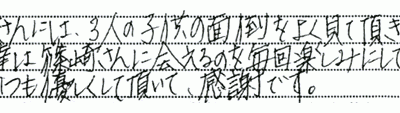 さんには、3人の子供の面倒をよく見て頂き
は篠崎さんに会えるのを毎回楽しみにして
つも優しくして頂いて、感謝です。